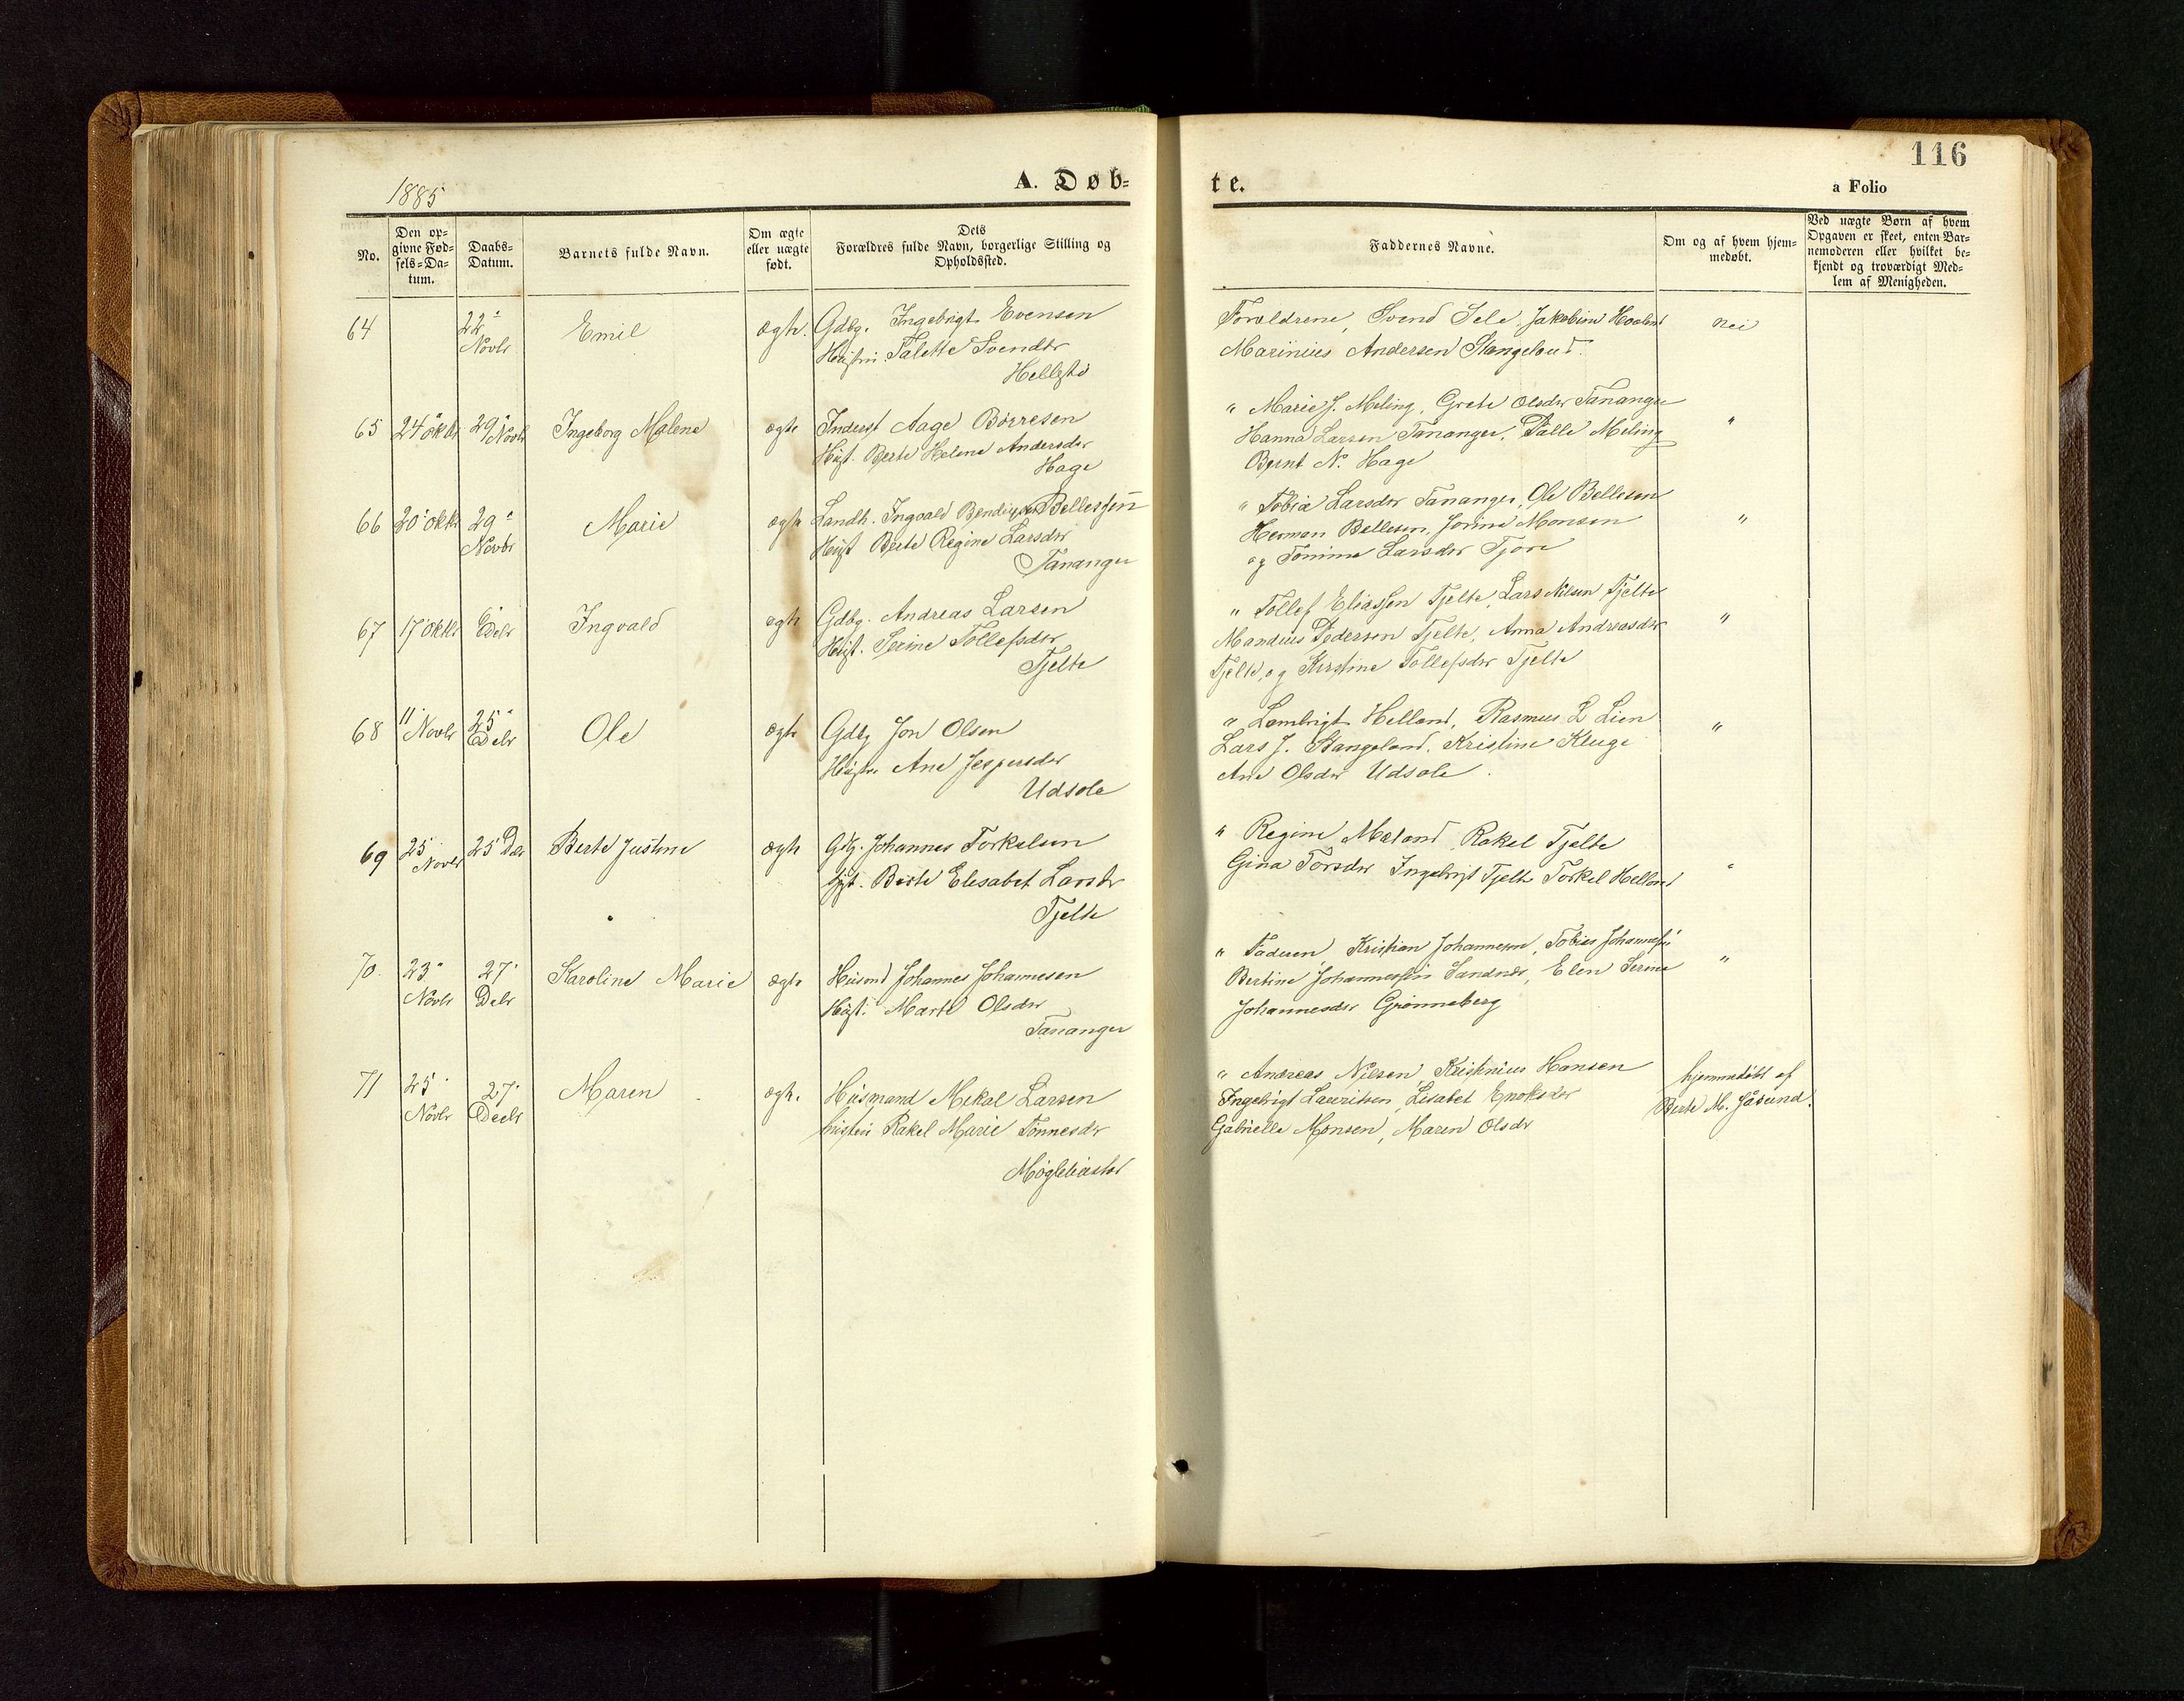 116
1885
A. Døb-
te.
a Folio
No.
Den op-
givne Fød-
sels-Da-
tum.
Daabs-
Datum.
Barnets fulde Navn.
Om ægte
eller uægte
født.
Dets
Forældres fulde Navn, borgerlige Stilling og
Opholdssted.
Faddernes Navne.
Om og af hvem hjem-
medøbt.
Ved uægte Børn af hvem
Opgaven er skeet, enten Bar-
nemoderen eller hvilket be-
kjendt og troværdigt Med-
lem af Menigheden.
64
22
Novbr
Emil
ægte.
Gdbg. Ingebrigt Evensen
Hustru Talette Svendsdr
Hellestø
Forældrene, Svend Sele, Jakobine Haaland
Marinius Andersen Stangeland.
nei
65 24 oktbr 29 Novbr Ingeborg Malene ægte
Inderst Aage Børresen
Hust. Berte Helene Andersdr
Hage
" Marie J. Meling, Grete Olsdr Tananger
Hanna Larsen Tananger, Palle Meling
Bernt N. Hage
"
66 20 oktbr 29
Novbr
Marie
ægte
Landh. Ingvald Bendix Bellessen
Hust Berte Regine Larsdr
Tananger
" Tobia Larsdr Tananger, Ole Bellesen
Herman Bellesen, Jorine Monsen
og Tomine Larsdr Tjore
"
67 17 oktbr Debr Ingvald ægte
Gdbg. Andreas Larsen
Hust. Serine Tollefsdr
Tjelte
" Tollef Eliassen Tjelte, Lars Nilsen Tjelte
Mandius Pedersen Tjelte, Anna Andreasdr
Tjelte, og Kirstine Tollefsdr Tjelte
"
68 11 Novbr 25
Debr
Ole
ægte
Gdbg Jon Olsen
Hustru Ane Jespersdr
Udsole
" Lambrigt Helland, Rasmus L Lien
Lars J. Stangeland, Kristine Kluge
Ane Olsdr Udsole.
"
69 25
Novbr
25 Dec Berte Justine ægte
Gdbg. Johannes Torkelsen
Hust. Berte Elesabet Larsdr
Tjelte
" Regine Meland Rakel Tjelte
Gina Torsdr Ingebrigt Tjelte Torkel Helland
"
70. 23
Novbr
27
Debr
Karoline Marie ægte
Husmd Johannes Johannesen
Hust. Marte Olsdr
Tananger
" Faderen, Kristian Johannesen, Tobias Johannessen
Bertine Johannessen Sandnes, Elen Serine
Johannesdr Grønneberg
"
71 25
Novbr
27
Decbr
Maren
ægte.
Husmand Mikal Larsen
hustru Rakel Marie Tønnesdr
" Andreas Nilsen, Kristinius Hansen
Ingebrigt Lauritsen, Lisabet Enoksdr
Gabrielle Monsen, Maren Olsdr
hjemmedøbt af
Berte M. Jåsund.